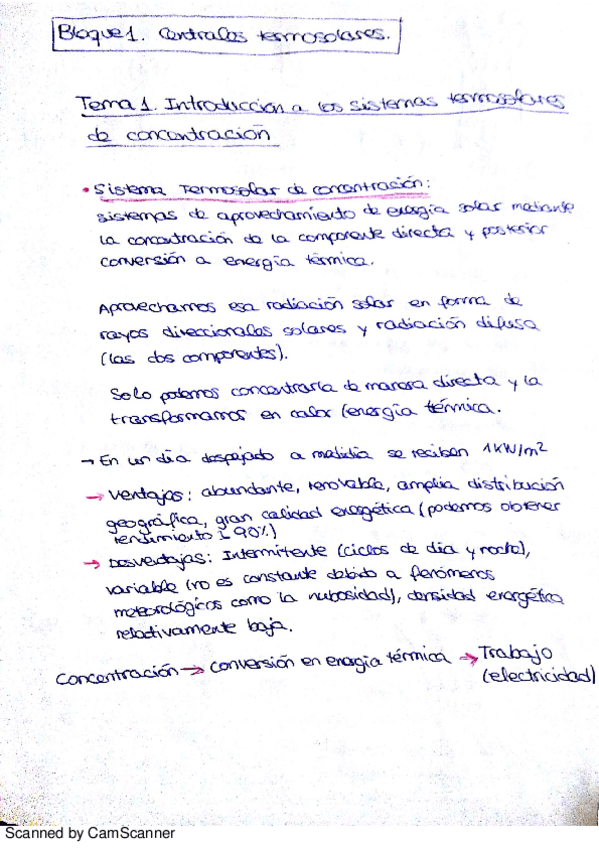 Bloque 1. Centrales termosolares.
Tema 1. Introducción a los sistemas termosolares
de concentración
• Sistema Termosolar de concentración:
sistemas de aprovechamiento de energía solar mediante
la concentración de la componente directa y posterior
conversión a energía térmica.
Aprovechamos esa radiación solar en forma de
rayos direccionales solares y radiación difusa
(las dos componentes).
Solo podemos concentrarla de manera directa y la
transformamos en calor (energía térmica.
→ En un día despejado a mediodía se reciben 1KW/m²
→ Ventajas: abundante, renovable, amplia distribución
geográfica, gran calidad exergética (podemos obtener
rendimiento ≥ 90%)
→ Desventajas: Intermitente (ciclos de día y noche),
variable (no es constante debido a fenómenos
meteorológicos como la nubosidad), densidad energética
relativamente baja.
Concentración → conversión en energía térmica → Trabajo
(electricidad)
Scanned by CamScanner